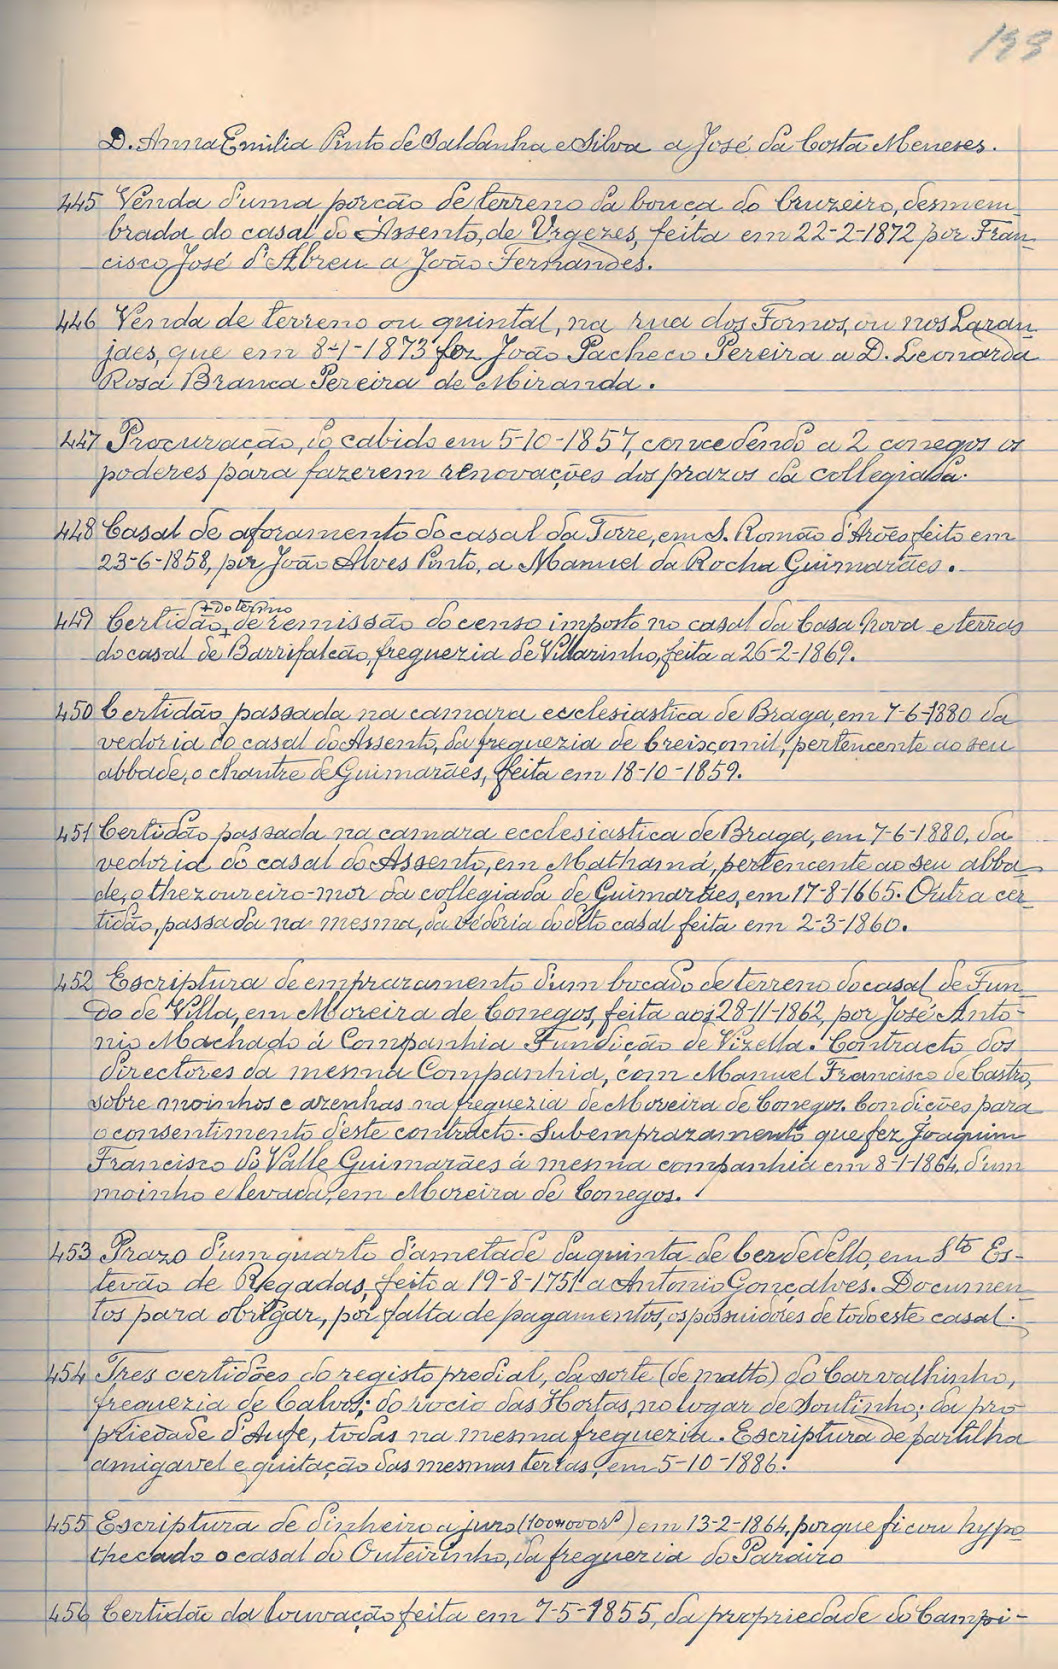 133
D. Anna Emilia Pinto de Saldanha e Silva a José da Costa Meneses.
445 Venda d'uma porcão de terreno da bouça do Cruzeiro, desmem-
brada do casal do Assento, de Urgezes, feita em 22-2-1872 por Fran-
cisco José d'Abreu a João Fernandes.
446 Venda de terreno ou quintal, na rua dos Fornos, ou nos Laran-
jaes, que em 8-1-1873 fez João Pacheco Pereira a D. Leonarda
Rosa Branca Pereira de Miranda.
447 Procuração, do cabido em 5-10-1857, concedendo a 2 conegos os
poderes para fazerem renovações dos prazos da collegiada.
448 Casal de aforamento do casal da Torre, em S. Romão d'Arões feito em
23-6-1858, por João Alves Pinto, a Manuel da Rocha Guimarães.
+ do termo
449 Certidão + de remissão do censo imposto no casal da Casa Nova e terras
do casal de Barrifalcão, freguezia de Villarinho, feita a 26-2-1869.
450 Certidão passada na camara ecclesiastica de Braga, em 7-6-1880 da
vedoria do casal do Assento, da freguezia de Creixomil, pertencente ao seu
abbade, o chantre de Guimarães, feita em 18-10-1859.
451 Certidão passada na camara ecclesiastica de Braga, em 7-6-1880, da
vedoria do casal do Assento, em Mathamá, pertencente ao seu abba-
de, o thezoureiro-mor da collegiada de Guimarães, em 17-8-1665. Outra cer-
tidão, passada na mesma, da védoria do dito casal feita em 2-3-1860.
452 Escriptura de emprazamento d'um bocado de terreno do casal de Fun-
do de Villa, em Moreira de Conegos, feita aos 28-11-1862, por José Anto-
nio Machado á Companhia Fundição de Vizella. Contracto dos
directores da mesma Companhia, com Manuel Francisco de Castro,
sobre moinhos e azenhas na freguezia de Moreira de Conegos. Condições para
o consentimento d'este contracto. Subemprazamento que fez Joaquim
Francisco do Valle Guimarães á mesma companhia em 8-1-1864, d'um
moinho e levada, em Moreira de Conegos.
453 Prazo d'um quarto d'ametade da quinta de Cerdedello, em Sto Es-
tevão de Regadas, feito a 19-8-1751 a Antonio Gonçalves. Documen-
tos para obrigar, por falta de pagamentos, os possuidores de todo este casal.
454 Tres certidões do registo predial, da sorte (de matto) do Carvalhinho,
freguezia de Calvos; do rocio das Hortas, no logar de Soutinho; da pro
priedade d'Aufe, todas na mesma freguezia. Escriptura de partilha
amigavel e quitação das mesmas terras, em 5-10-1886.
455 Escriptura de dinheiro a juro (100#000 rs) em 13-2-1864, porque ficou hypo
thecado o casal do Outeirinho, da freguezia do Paraizo
456 Certidão da louvação feita em 7-5-1855, da propriedade do Campi-